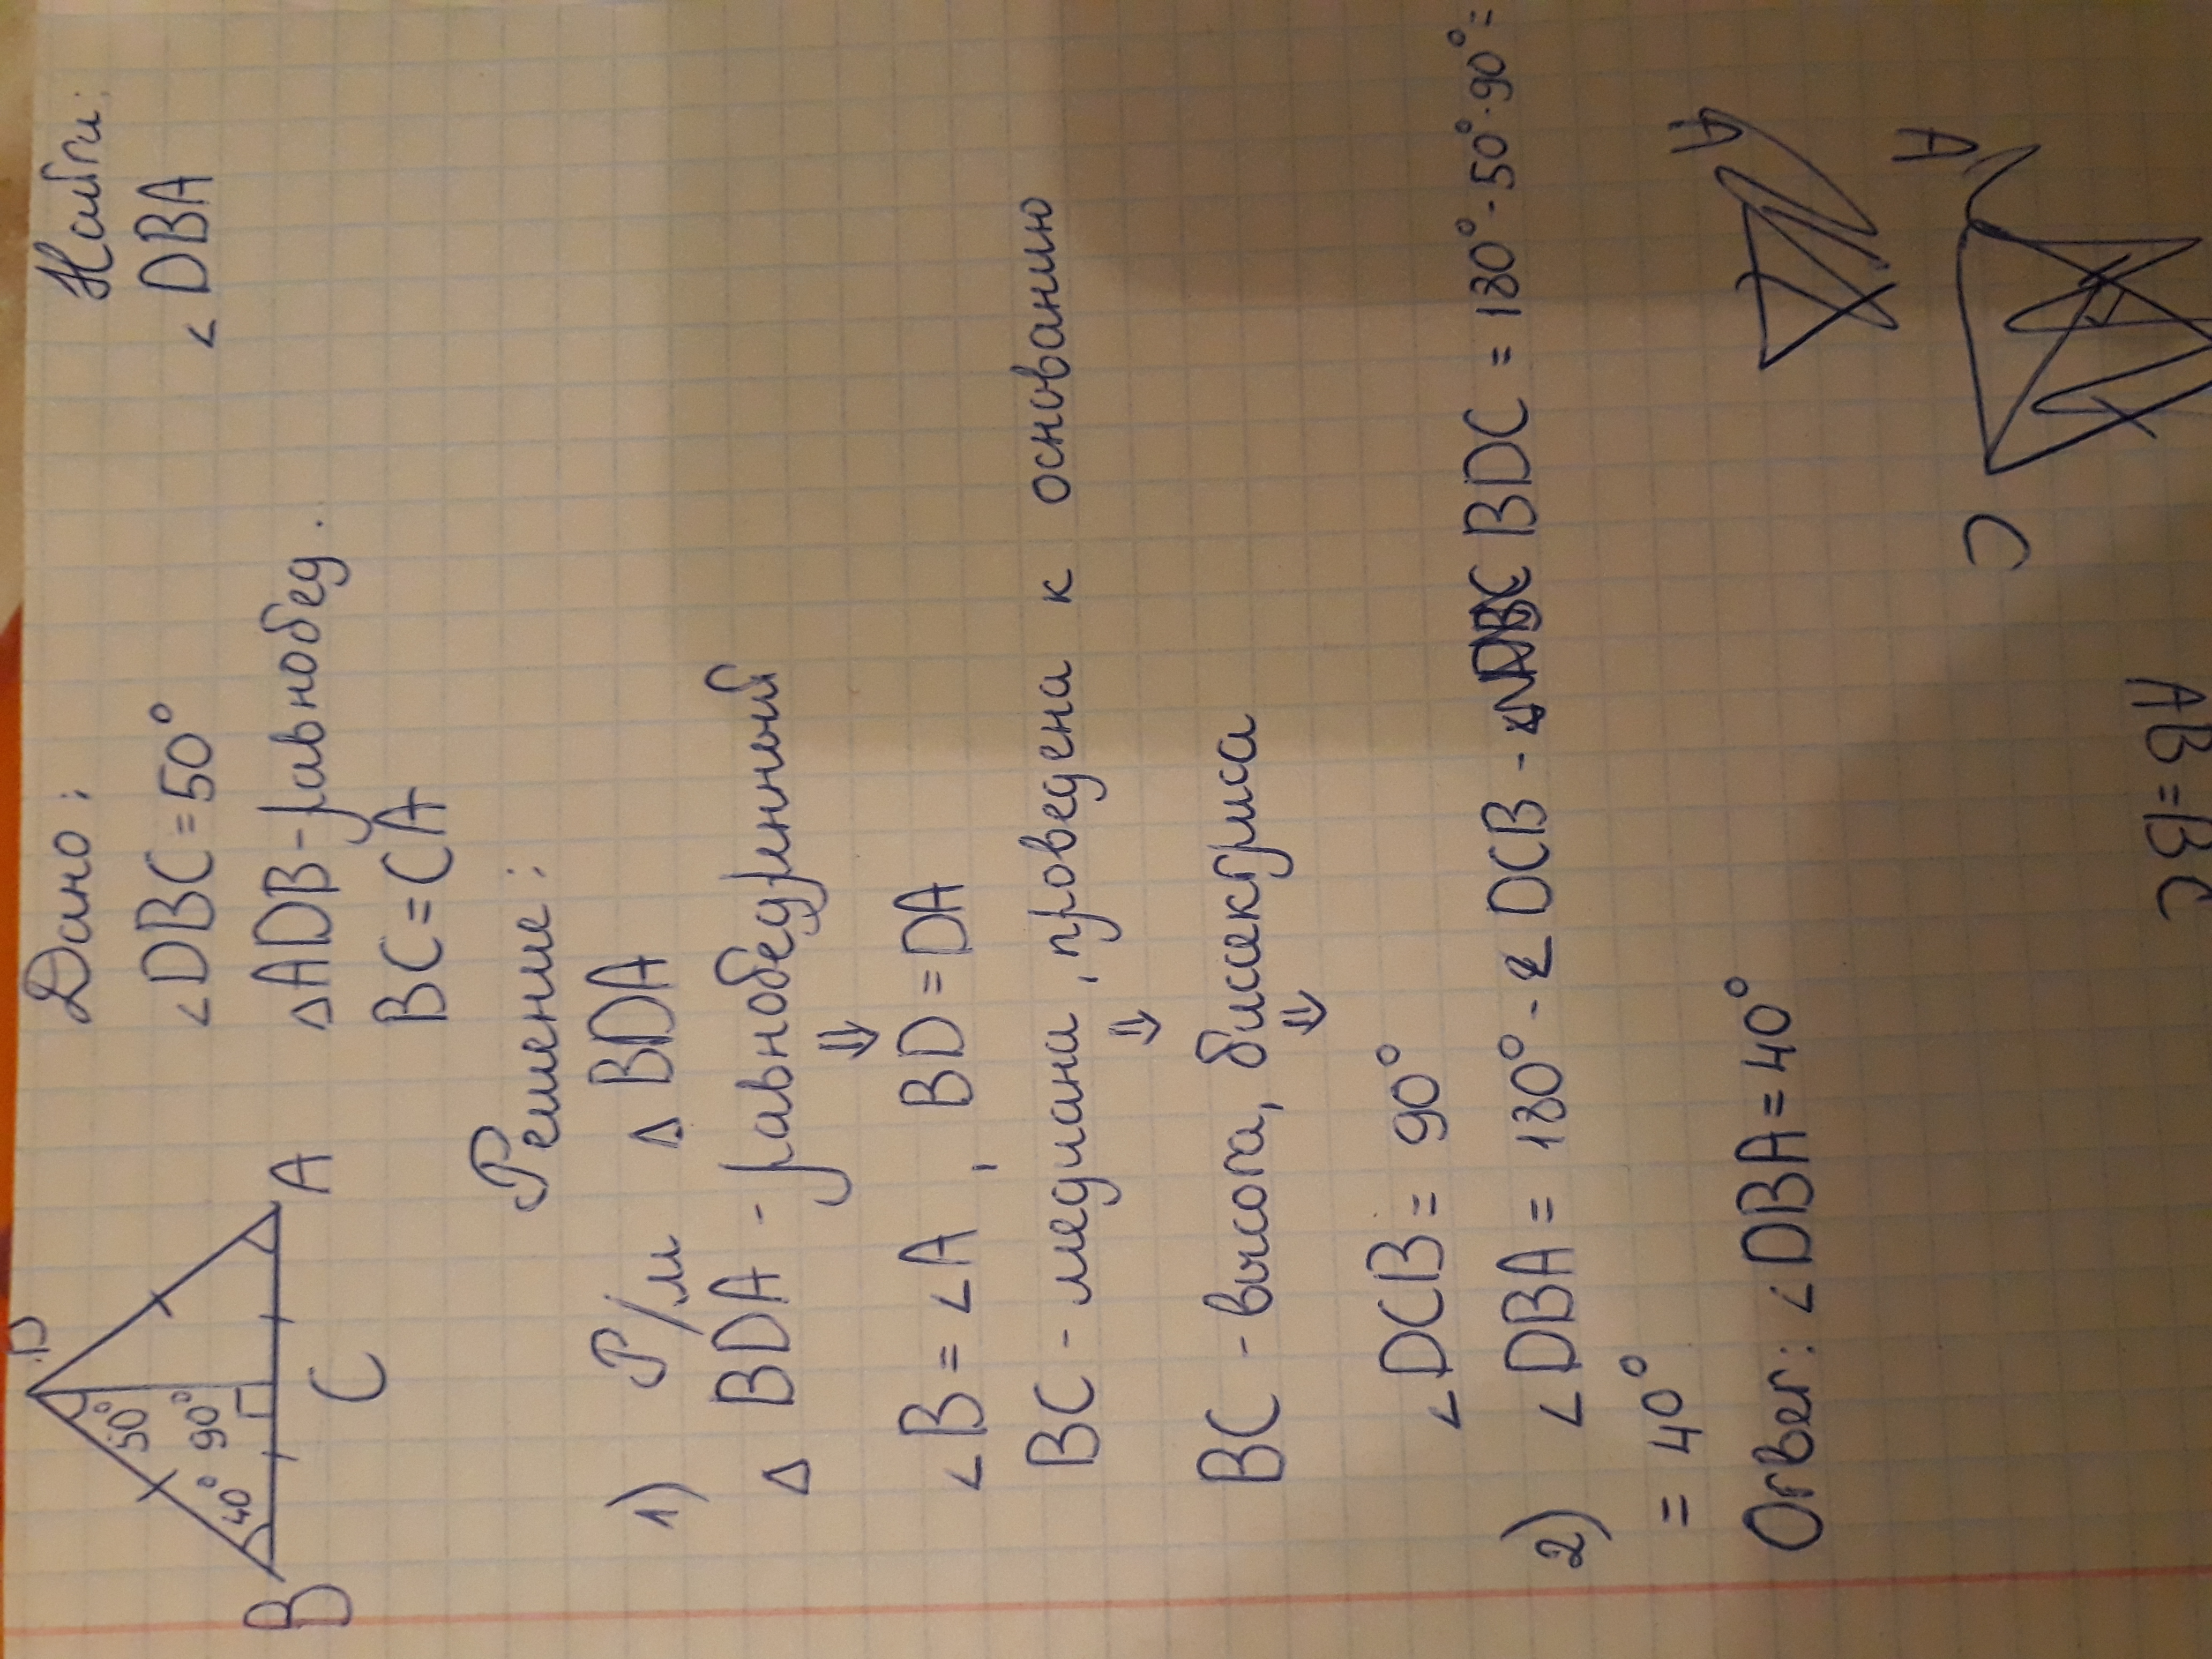 D
50°
90°
40°
B
C
A
Дано:
∠DBC = 50°
△ADB - равнобед.
BC = CA
Найти:
∠DBA
Решение:
1) Р/м △ BDA
△ BDA - равнобедренный
⇓
∠B = ∠A , BD = DA
BC - медиана, проведена к основанию
⇓
BC - высота, биссектриса
⇓
∠DCB = 90°
2) ∠DBA = 180° - ∠DCB - BDC = 180° - 50° - 90° =
= 40°
Ответ: ∠DBA = 40°
A
A
C
AB = BC